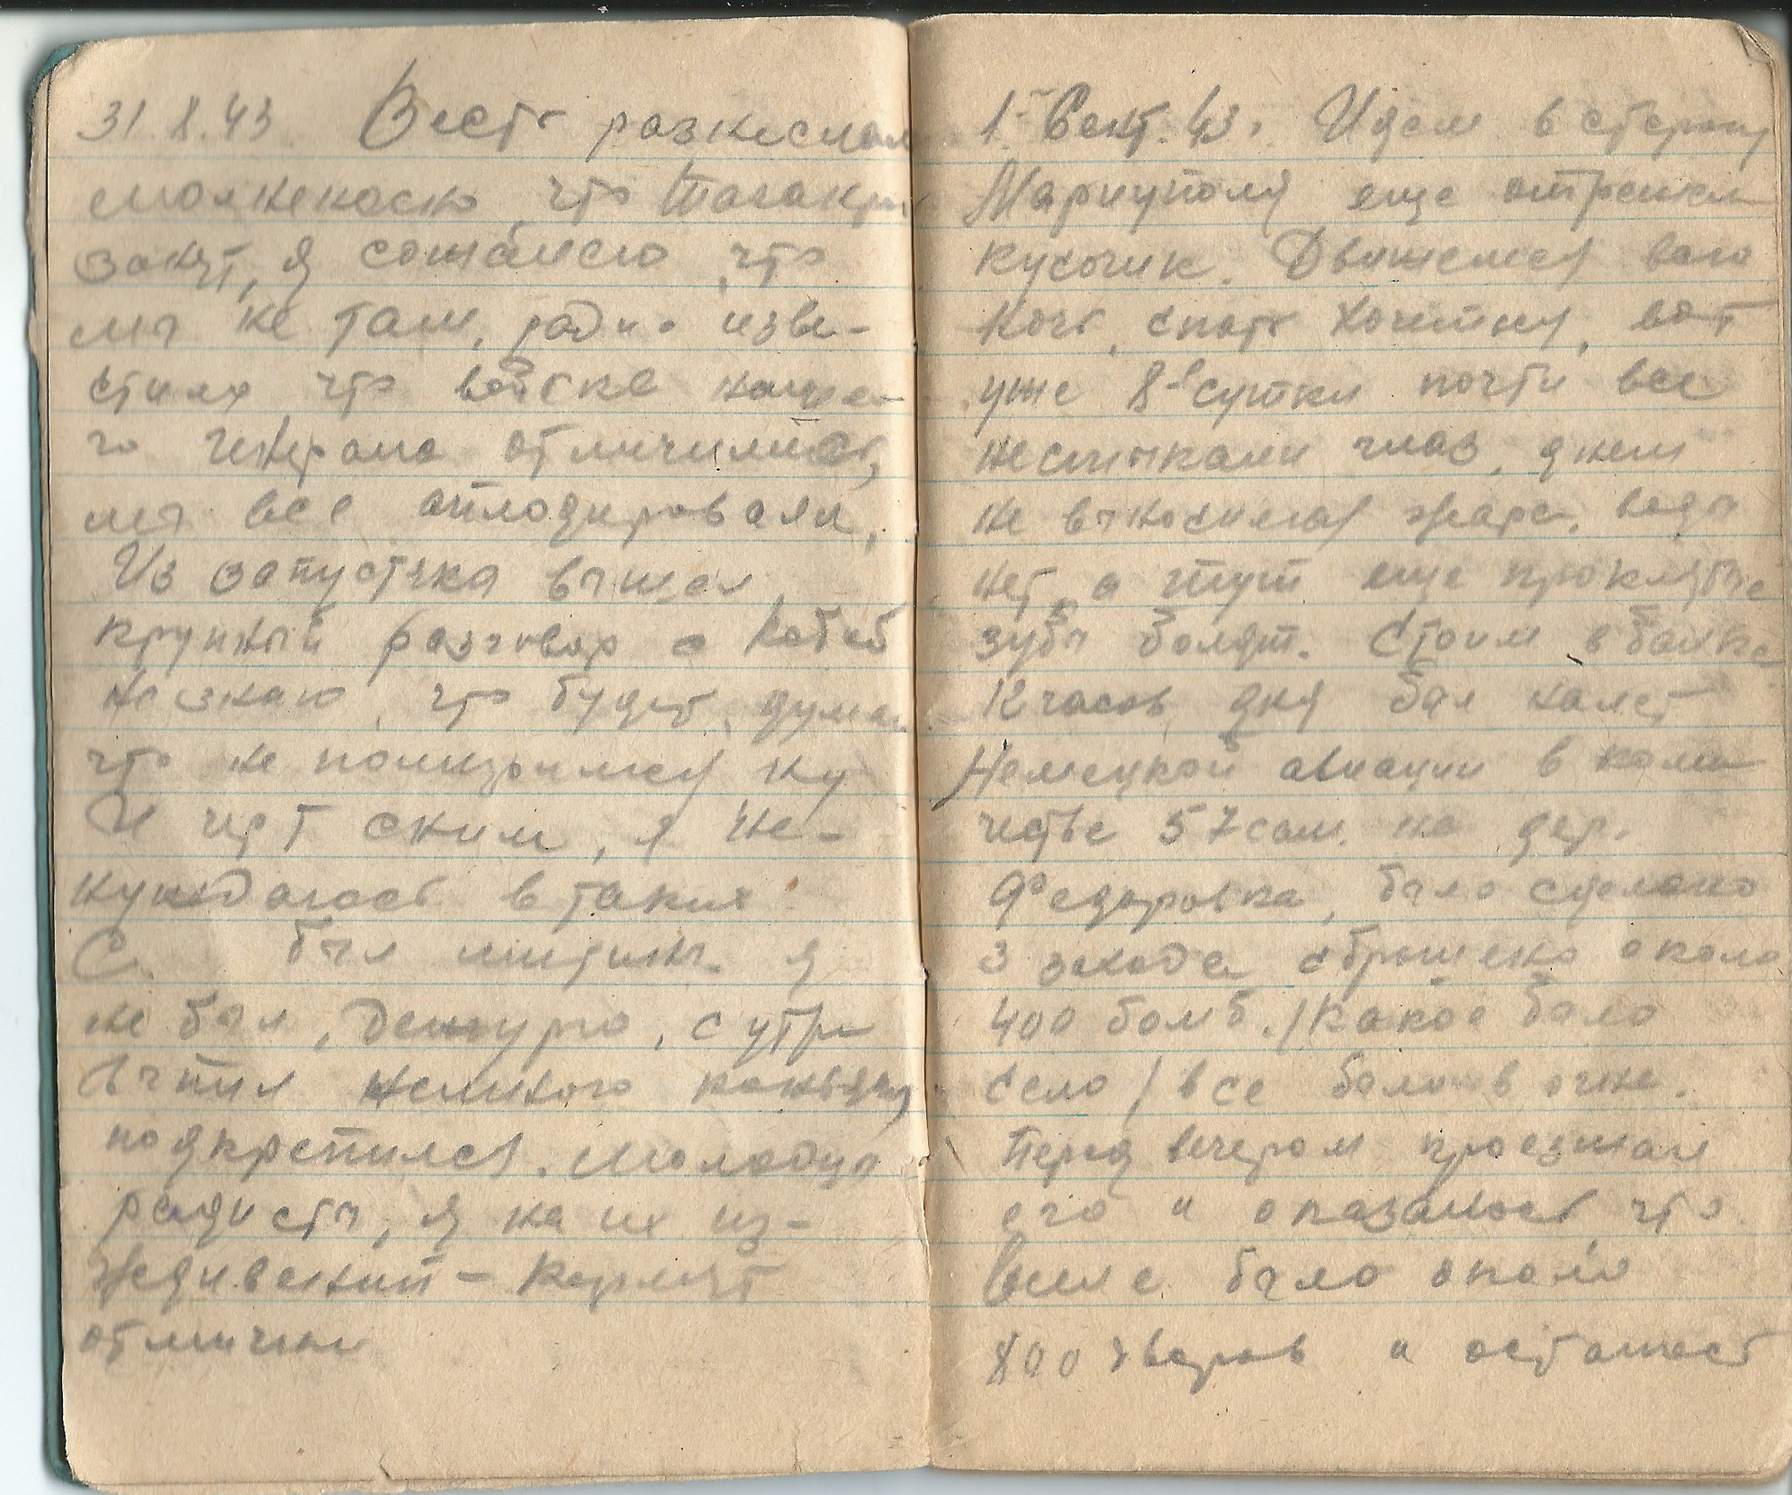 31.8.43 Весть разнеслась
молненосно, что Таганрог
занят, я сожалею, что
мы не там, радио изве-
стило что войска нашe-
го генерала отличились,
мы все аплодировали.
Из запустяка вышел
крупный разговор с
не знаю, что будет, думаю
что не помиримся ну
и черт сним, я не-
нуждаюсь в таких
С. был митинг. я
не был, дежурю, с утра
выпил немного коньяку,
подкрепился. Молодцы
радисты, я на их из-
ждивений – кормят
отлично
1. Сент. 43. Идем в сторону
Мариуполя еще отрежем
кусочик. Движемся всю
ночь, спать хочется, вот
уже 8е сутки почти все
несмыкали глаз, днем
не выносимая жара, воды
нет, а тут еще проклятые
зубы болят. Стоим в балке
12 часов дня был налет
Немецкой авиации в коли
честве 57 сам. на дер.
Федоровка, было сделано
3 захода сброшено около
400 бомб. /Какое было
село/ все было в огне.
Перед вечером проезжали
его и оказалось что
было около
800 дворов и осталось